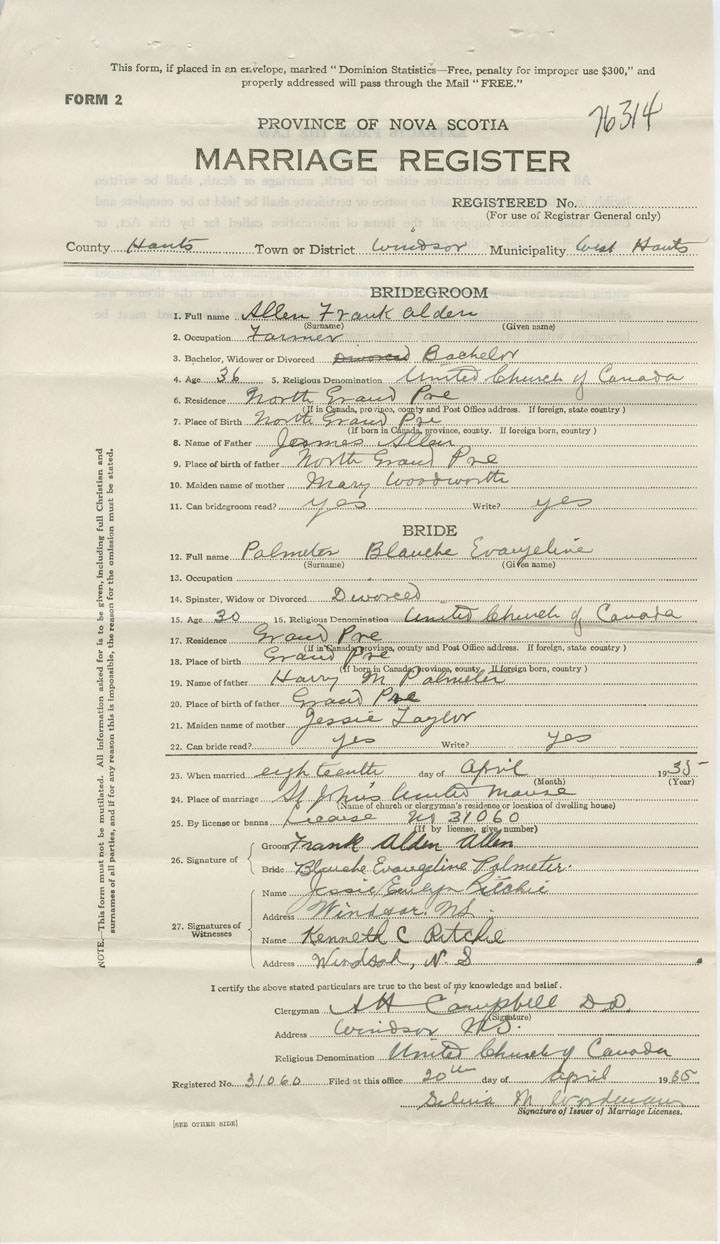 This form, if placed in an envelope, marked "Dominion Statistics—Free, penalty for improper use $300," and
properly addressed will pass through the Mail "FREE."
FORM 2
76314
PROVINCE OF NOVA SCOTIA
MARRIAGE REGISTER
REGISTERED No.
(For use of Registrar General only)
County Hants Town or District Windsor Municipality West Hants
BRIDEGROOM
1. Full name Allen Frank Alden
(Surname) (Given name)
2. Occupation Farmer
3. Bachelor, Widower or Divorced Divorced Bachelor
4. Age 36 5. Religious Denomination United Church of Canada
6. Residence North Grand Pre
(If in Canada, province, county and Post Office address. If foreign, state country)
7. Place of Birth North Grand Pre
(If born in Canada, province, county. If foreign born, country)
8. Name of Father Jeames Allen
9. Place of birth of father North Grand Pre
10. Maiden name of mother Mary Woodworth
11. Can bridegroom read? yes Write? yes
BRIDE
12. Full name Palmeter Blanche Evangeline
(Surname) (Given name)
13. Occupation
14. Spinster, Widow or Divorced Divorced
15. Age 30 16. Religious Denomination United Church of Canada
17. Residence Grand Pre
(If in Canada, province, county and Post Office address. If foreign, state country)
18. Place of birth Grand Pre
(If born in Canada, province, county. If foreign born, country)
19. Name of father Harry M Palmeter
20. Place of birth of father Grand Pre
21. Maiden name of mother Jessie Taylor
22. Can bride read? yes Write? yes
23. When married eighteenth day of April 1935
(Month) (Year)
24. Place of marriage St John's United Manse
(Name of church or clergyman's residence or location of dwelling house)
25. By license or banns License No 31060
(If by license, give number)
26. Signature of
Groom Frank Alden Allen
Bride Blanche Evangeline Palmeter.
27. Signatures of Witnesses
Name Jessie Evelyn Ritchie
Address Windsor. N.S.
Name Kenneth C Ritchie
Address Windsor, N. S
NOTE.—This form must not be mutilated. All information asked for is to be given, including full Christian and
surnames of all parties, and if for any reason this is impossible, the reason for the omission must be stated.
I certify the above stated particulars are true to the best of my knowledge and belief.
Clergyman A H Campbell D.D.
(Signature)
Address Windsor N.S.
Religious Denomination United Church of Canada
Registered No. 31060 Filed at this office 20th day of April 1935
M. Woodman
Signature of Issuer of Marriage Licenses.
[SEE OTHER SIDE]